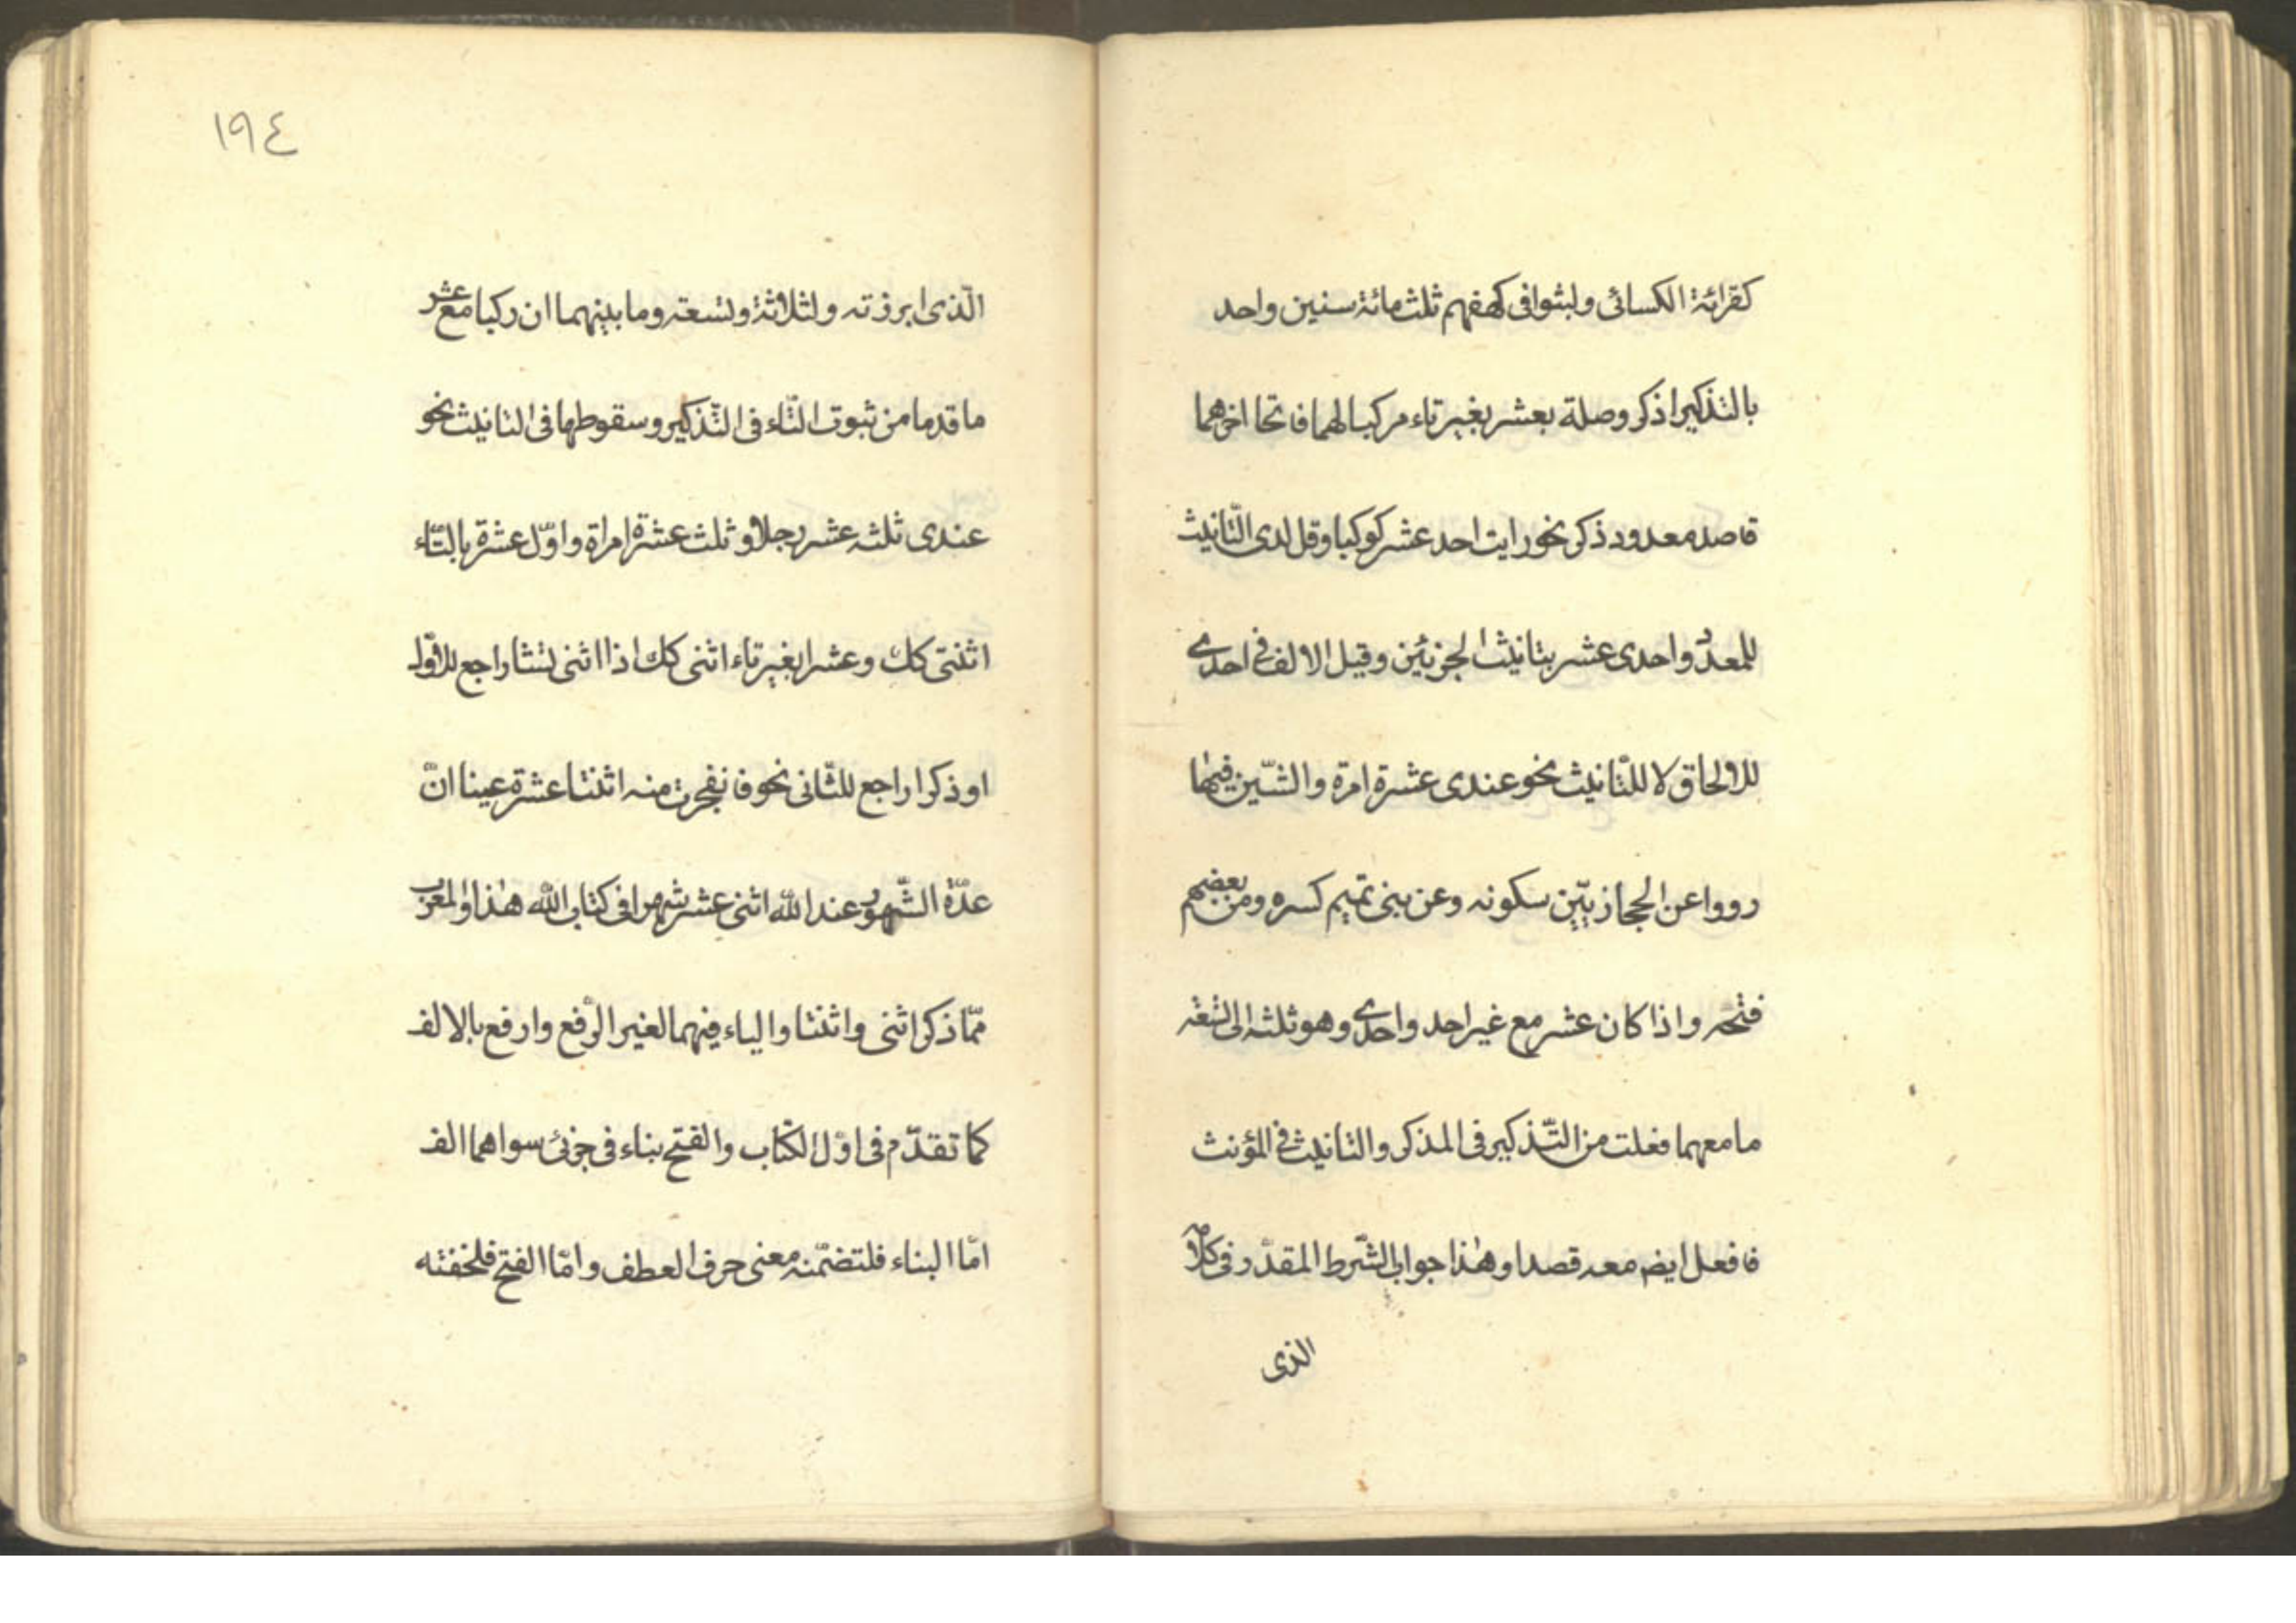 كقرائة الكسائى ولبثوا فى كهفهم ثلث مائة سنين واحد
بالتذكير اذكر وصلة بعشر بغير تاء مركبا لهما فاتحا اخرهما
قاصد معدود ذكر نحو رايت احد عشر كوكبا وقل لدى التّانيث
للمعدود احدى عشر بتانيث الجزئين وقيل الالف فى احدى
للالحاق لا للتّانيث نحو عندى عشرة امرة والشّين فيها
رووا عن الحجازيّين سكونه وعن بنى تميم كسره ومن بعضهم
فتحه واذا كان عشر مع غير احد واحدى وهو ثلثه الى تسعه
ما معهما فعلت من التّذكير فى المذكر والتانيث فى المؤنث
فافعل ايض معه قصدا وهذا جواب الشّرط المقدّر فى كلامه
الذى
١٩٤
الّذى ابرزته ولثلاثة وتسعته وما بينهما ان ركبا مع عشر
ما قدما من ثبوت التّاء فى التّذكير وسقوطها فى التانيث نحو
عندى ثلثه عشر رجلا وثلث عشرة امراة واوّل عشرة بالتّاء
اثنتى كك وعشرا بغير تاء اثنى كك اذا اثنى تشا راجع للاوّل
او ذكرا راجع للثّانى نحو فانفجرت منه اثنتا عشرة عينا انّ
عدّة الشّهور عند الله اثنى عشر شهرا فى كتاب الله هذا والمعرب
ممّا ذكر اثنى واثنتا والياء فيهما لغير الرّفع وارفع بالالف
كما تقدّم فى اوّل الكتاب والفتح بناء فى جزئى سواهما الف
امّا البناء فلتضمّنه معنى حرف العطف وامّا الفتح فلخفته